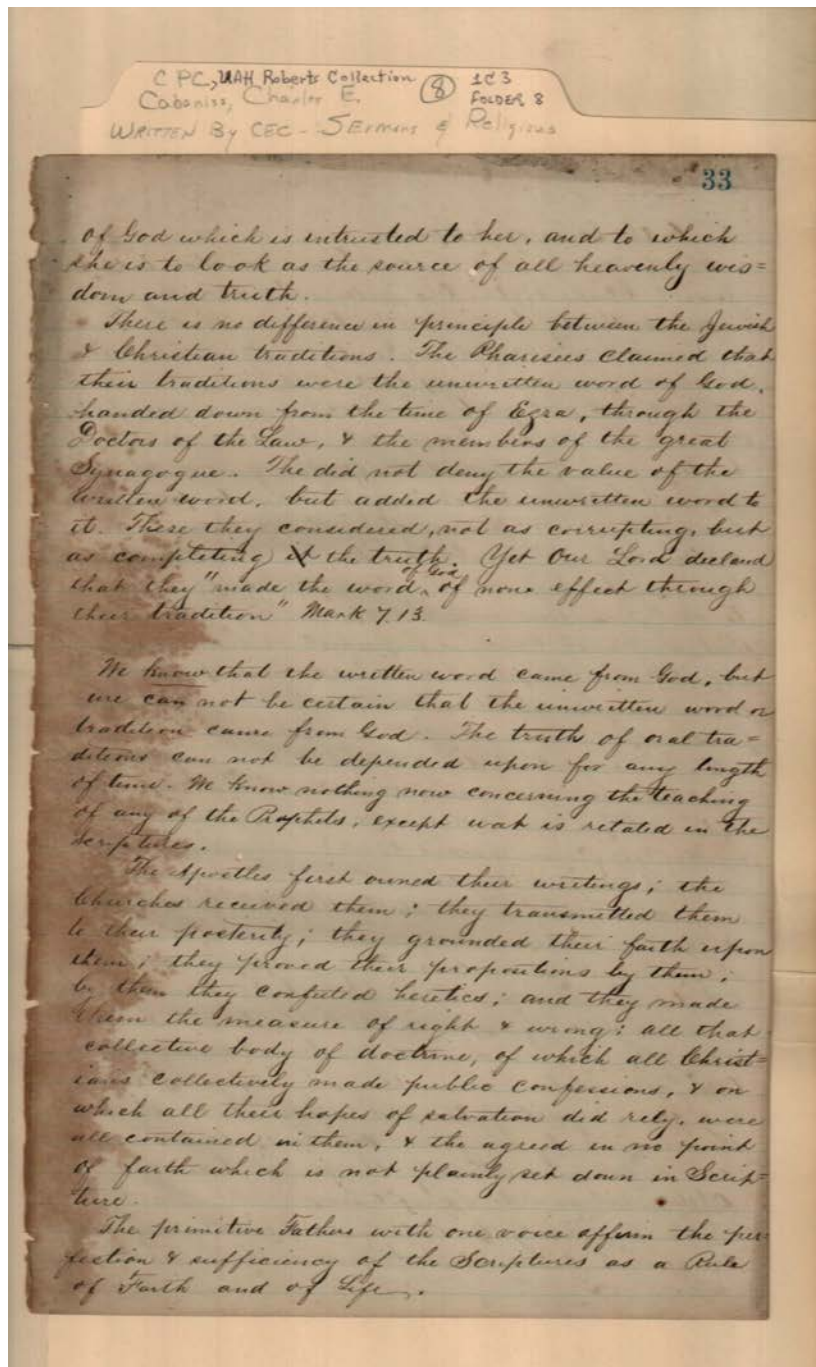 C PC, UAH Roberts Collection
Cabaniss, Charles E.
8
1C3
FOLDER 8
WRITTEN By CEC - SERMONS & Religious
33
of God which is intrusted to her, and to which
she is to look as the source of all heavenly wis=
dom and truth.
There is no difference in principle between the Jewish
& Christian traditions. The Pharisees claimed that
their traditions were the unwritten word of God,
handed down from the time of Ezra, through the
Doctors of the Law, & the members of the great
Synagogue. The did not deny the value of the
written word, but added the unwritten word to
it. These they considered, not as corrupting, but
as completing the truth. Yet Our Lord declared
that they "made the word of God of none effect through
their tradition" Mark 7.13.
We know that the written word came from God, but
we can not be certain that the unwritten word or
tradition came from God. The truth of oral tra=
ditions can not be depended upon for any length
of time. We know nothing now concerning the teaching
of any of the Prophets, except wat is retated in the
Scriptures.
The Apostles first owned their writings; the
Churches received them; they transmitted them
to their posterity; they grounded their faith upon
them; they proved their propositions by them;
by them they confuted heretics; and they made
them the measure of right & wrong: all that
collective body of doctrine, of which all Christ=
ians collectively made public confessions, & on
which all their hopes of salvation did rely, were
all contained in them, & the agreed in no point
of faith which is not plainly set down in Scrip=
ture.
The primitive Fathers with one voice affirm the per=
fection & sufficiency of the Scriptures as a Rule
of Faith and of Life.